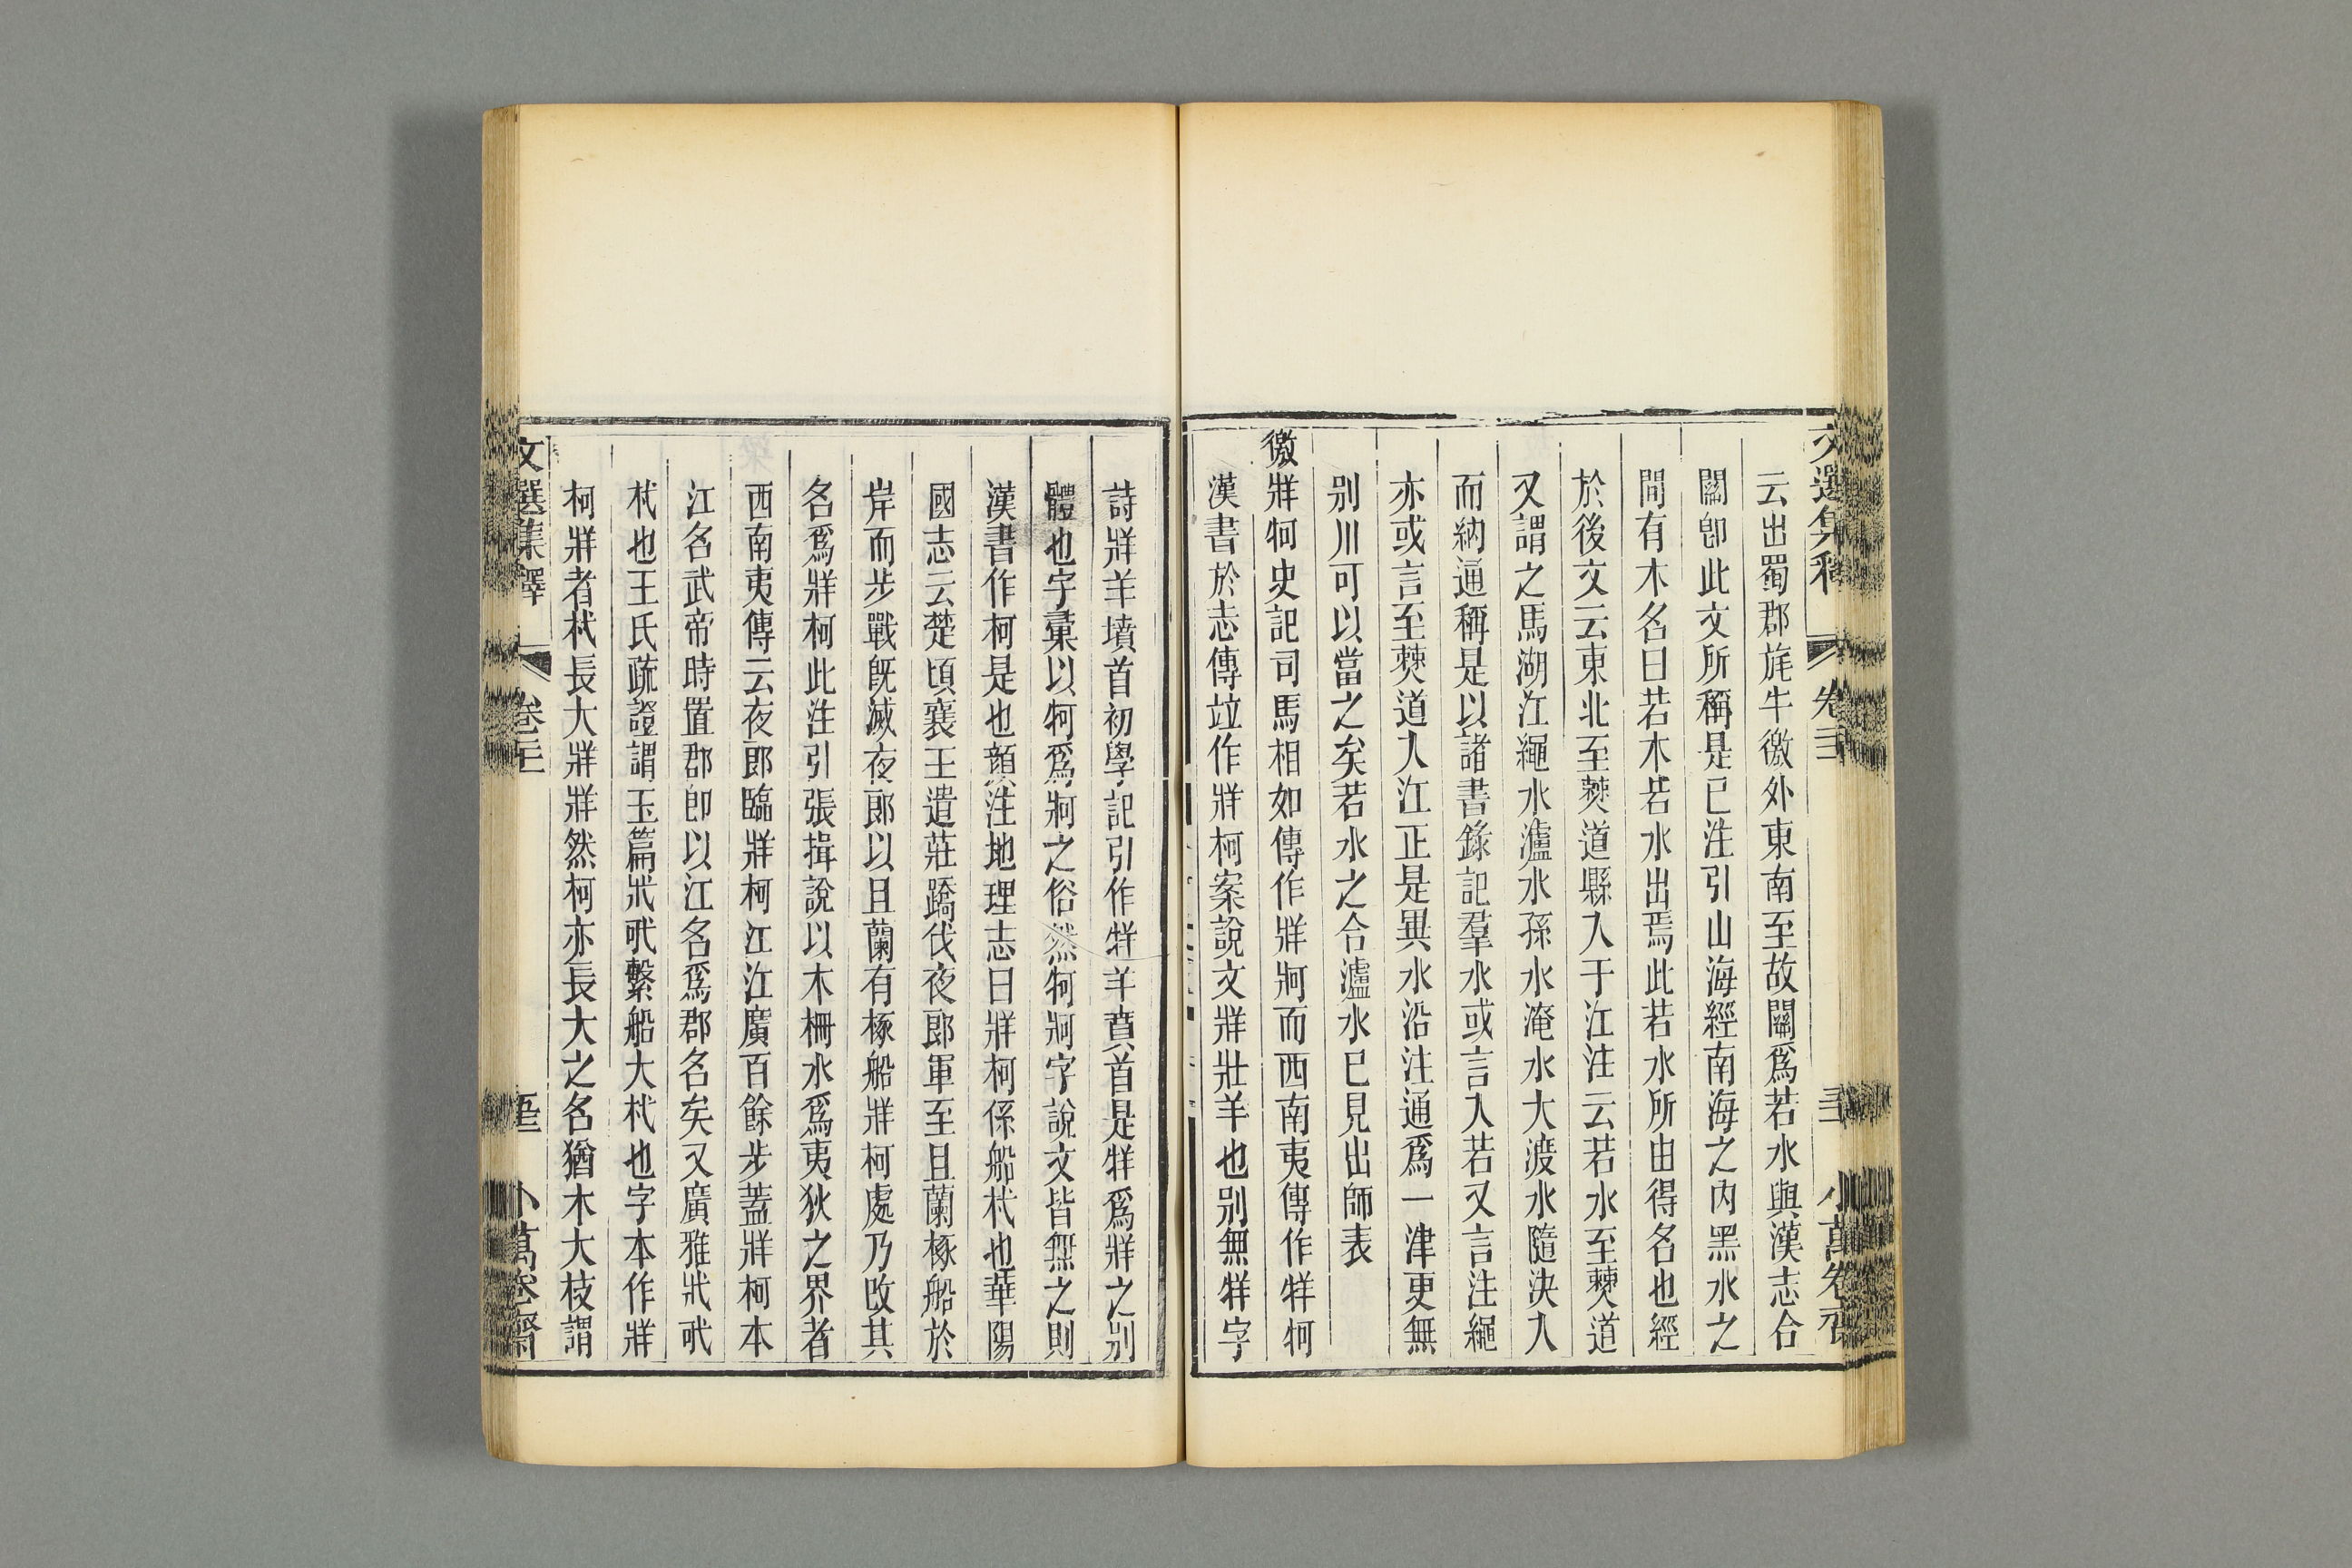 云出蜀郡旄牛徼外東南至故關爲若水與漢志合
關卽此文所稱是已注引山海經南海之内黑水之
間有木名曰若木若水出焉此若水所由得名也經
於後文云東北至僰道縣入于江注云若水至僰道
又謂之馬湖江繩水瀘水孫水淹水大渡水隨決入
而納通稱是以諸書錄記羣水或言入若又言注繩
亦或言至僰道入江正是異水沿注通爲一津更無
别川可以當之矣若水之合瀘水已見出師表
徼牂牁史記司馬相如傳作牂牁而西南夷傳作牂牁
漢書於志傳竝作牂柯案說文牂壯羊也别無牂字
詩牂羊墳首初學記引作牂羊蕡首是牂爲牂之别
體也字彙以牁爲牁之俗然牁牁字說文皆無之則
漢書作柯是也顏注地理志曰牂柯係船杙也華陽
國志云楚頃襄王遣莊蹻伐夜郎軍至且蘭椓船於
岸而步戰旣滅夜郎以且蘭有椓船牂柯處乃改其
名爲牂柯此注引張揖說以木柵水爲夷狄之界者
西南夷傳云夜郎臨牂柯江江廣百餘步蓋牂柯本
江名武帝時置郡卽以江名爲郡名矣又廣雅戕戙
杙也王氏疏證謂玉篇戕戙繫船大杙也字本作牂
柯牂者杙長大牂牂然柯亦長大之名猶木大枝謂
文選集釋